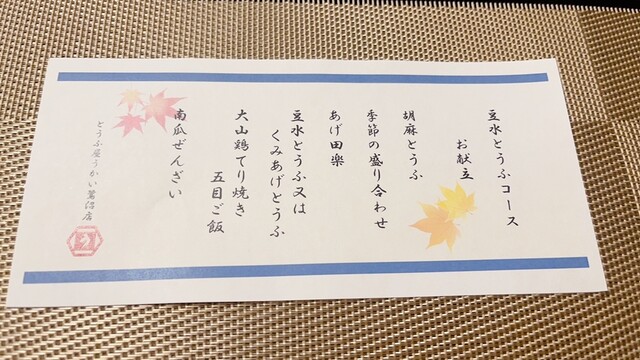 豆水とうふコース
お献立
胡麻とうふ
季節の盛り合わせ
あげ田楽
豆水とうふ又は
くみあげとうふ
大山鶏てり焼き
五目ご飯
南瓜ぜんざい
とうふ屋うかい鷺沼店
う